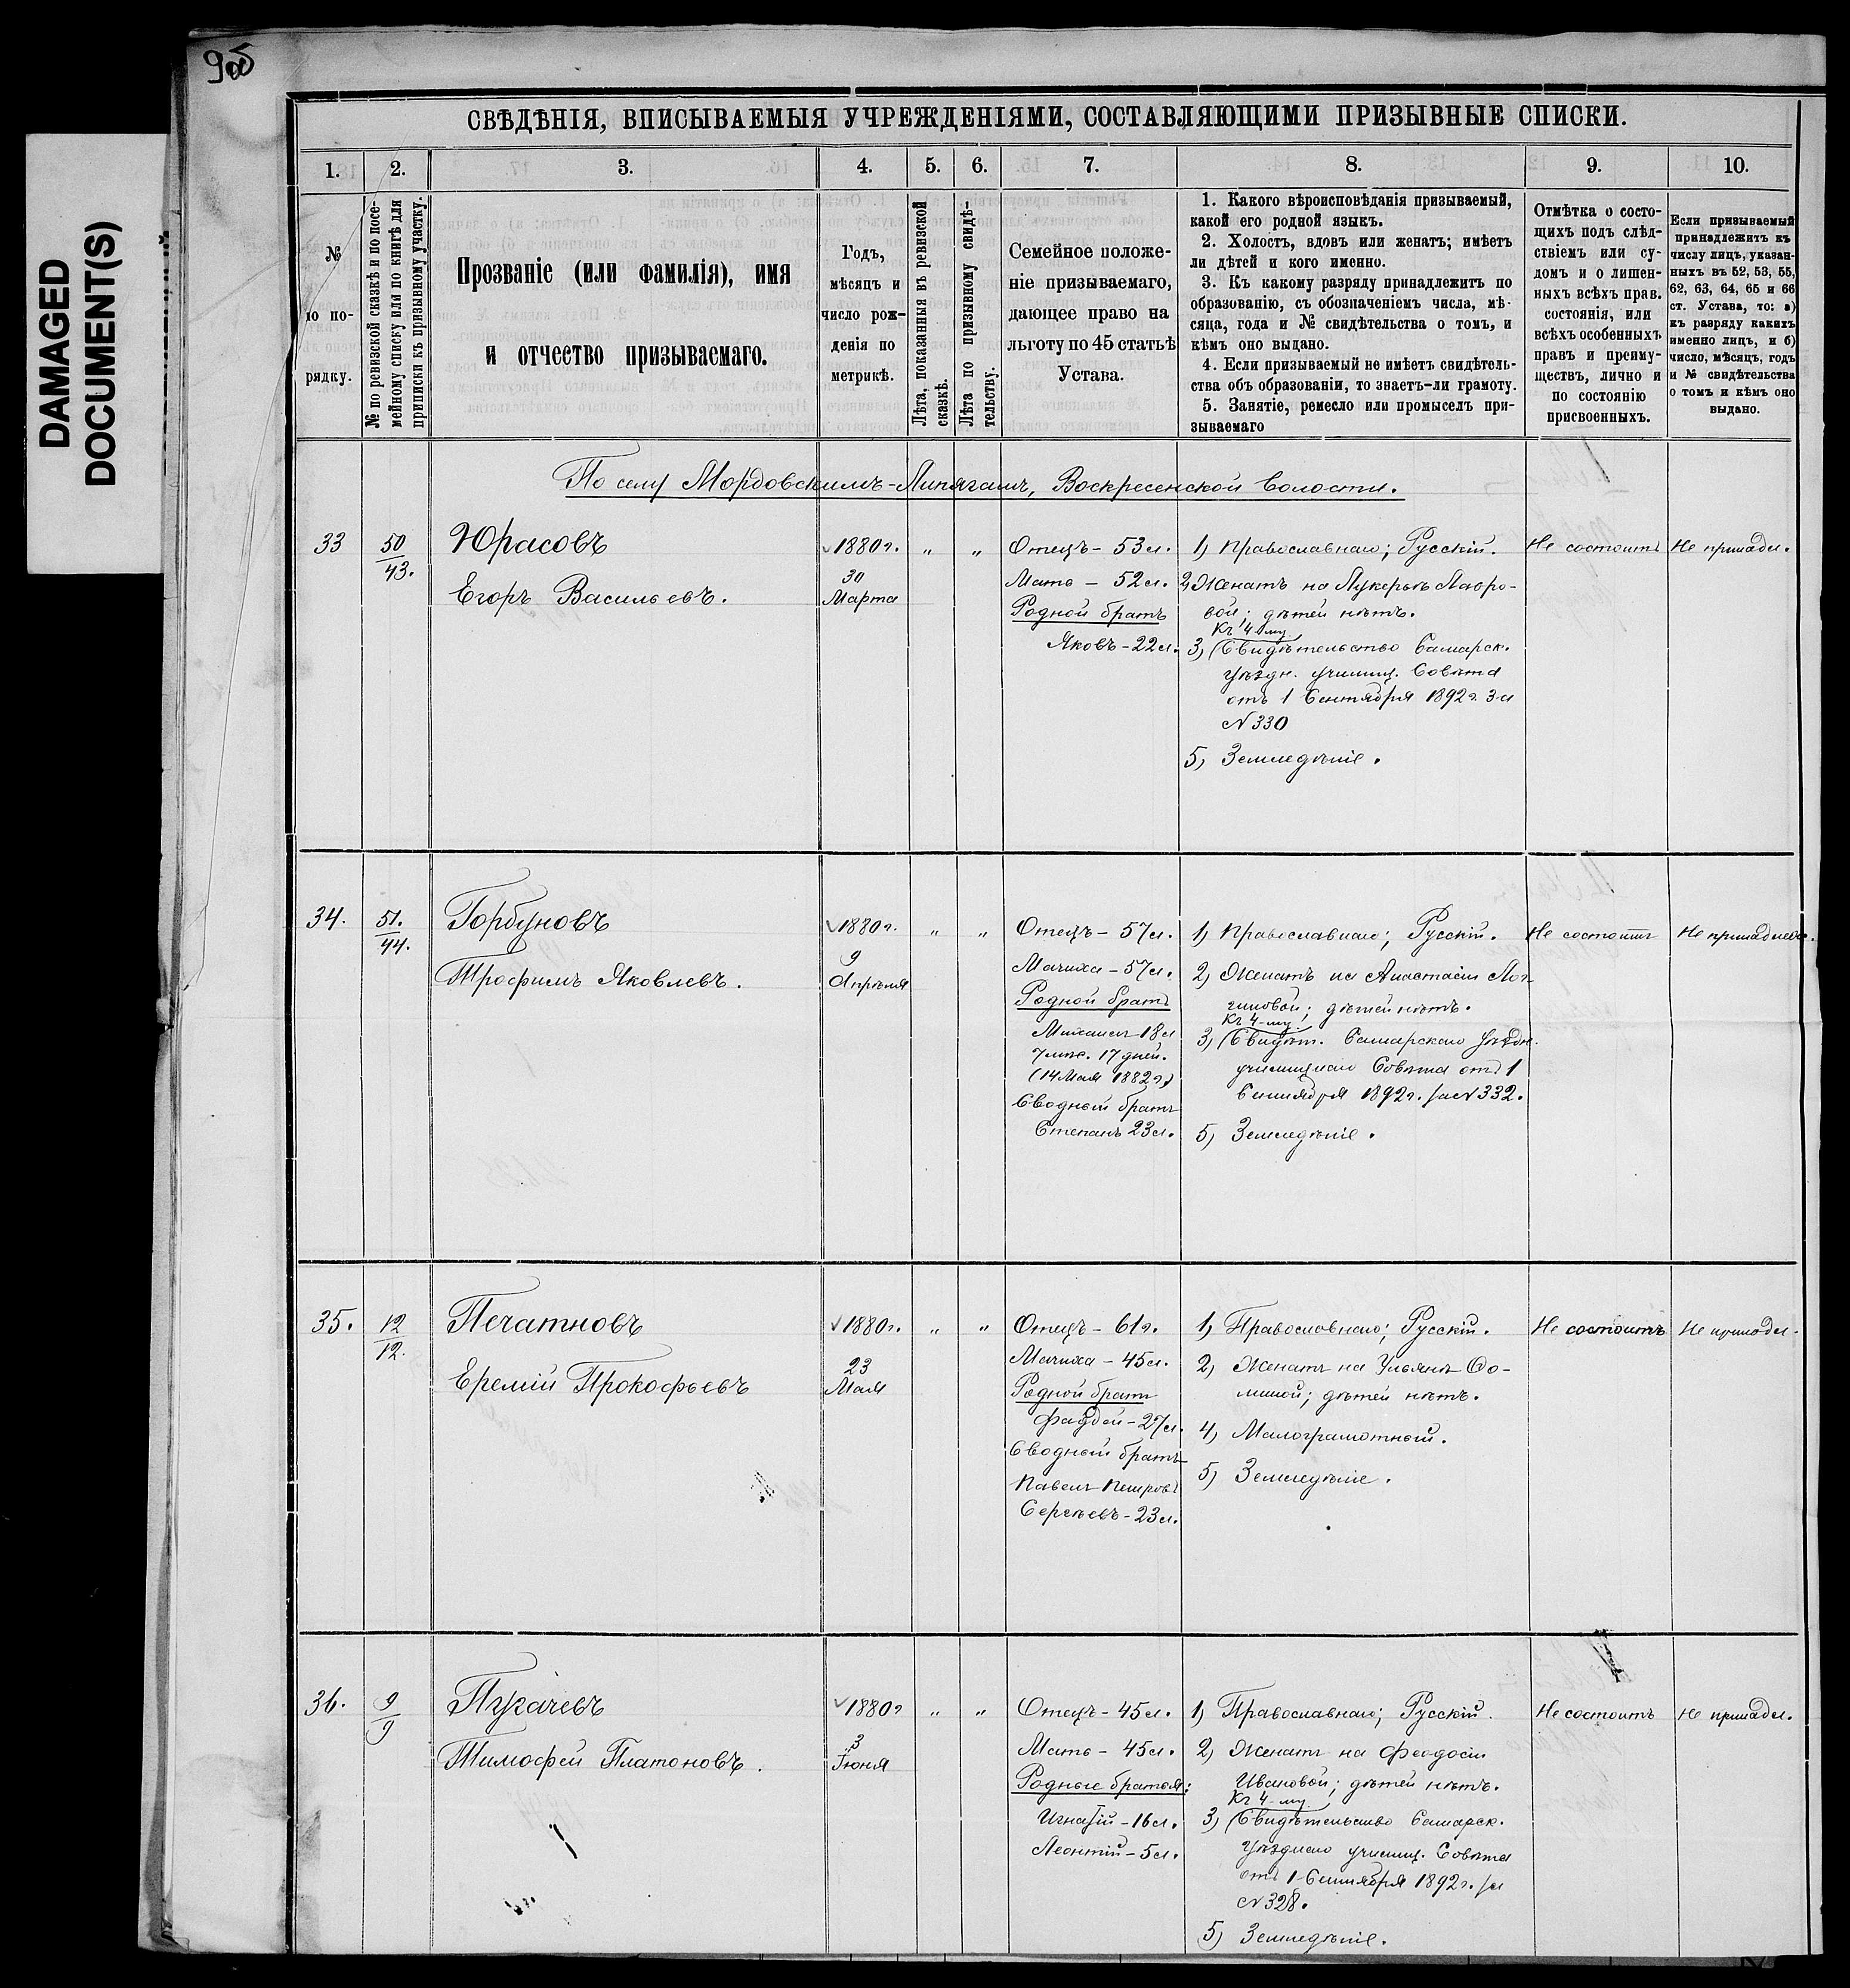 9об
DAMAGED
DOCUMENT(S)
СВѢДѢНІЯ, ВПИСЫВАЕМЫЯ УЧРЕЖДЕНІЯМИ, СОСТАВЛЯЮЩИМИ ПРИЗЫВНЫЕ СПИСКИ.
1. 2. 3. 4. 5. 6. 7. 8. 9. 10.
№
по по-
рядку.
№ по ревизской сказкѣ и по посе-
мейному списку или по книгѣ для
приписки къ призывному участку.
Прозваніе (или фамилія), имя
и отчество призываемаго.
Годъ,
мѣсяцъ и
число рож-
денія по
метрикѣ.
Лѣта, показанныя въ ревизской
сказкѣ.
Лѣта по призывному свидѣ-
тельству.
Семейное положе-
ніе призываемаго,
дающее право на
льготу по 45 статьѣ
Устава.
1. Какого вѣроисповѣданія призываемый,
какой его родной языкъ.
2. Холостъ, вдовъ или женатъ; имѣетъ
ли дѣтей и кого именно.
3. Къ какому разряду принадлежитъ по
образованію, съ обозначеніемъ числа, мѣ-
сяца, года и № свидѣтельства о томъ, и
кѣмъ оно выдано.
4. Если призываемый не имѣетъ свидѣтель-
ства объ образованіи, то знаетъ-ли грамоту.
5. Занятіе, ремесло или промыселъ при-
зываемаго
Отмѣтка о состо-
щихъ подъ слѣд-
ствіемъ или су-
домъ и о лишен-
ныхъ всѣхъ прав.
состоянія, или
всѣхъ особенныхъ
правъ и преиму-
ществъ, лично и
по состоянію
присвоенныхъ.
Если призываемый
принадлежитъ къ
числу лицъ, указан-
ныхъ въ 52, 53, 55,
62, 63, 64, 65 и 66
ст. Устава, то: а)
къ разряду какихъ
именно лицъ, и б)
число, мѣсяцъ, годъ
и № свидѣтельства
о томъ и кѣмъ оно
выдано.
По селу Мордовскимъ-Липягамъ, Воскресенской волости.
33
50
43.
Юрасовъ
Егоръ Васильевъ.
1880г.
30
Марта
„ „
Отецъ - 53л.
Мать - 52л.
Родной братъ
Яковъ - 22л.
1) Православнаго; Русскій.
2) Женатъ на Лукерьѣ Лавро-
вой; дѣтей нѣтъ.
Къ 4-му
3) Свидѣтельство Самарск.
уѣздн. училищ. Совѣта
отъ 1 Сентября 1892г. за
№ 330
5) Земледѣліе.
Не состоитъ
Не принадл.
34.
51.
44.
Горбуновъ
Трофимъ Яковлевъ.
1880г.
9
Апрѣля
„ „
Отецъ - 57л.
Мачиха - 57л.
Родной братъ
Михаилъ 18л
7 мѣс. 17 дней.
(14 Мая 1882г.)
Сводный братъ
Степанъ 23л.
1) Православнаго; Русскій.
2) Женатъ на Анастасіи
дѣтей нѣтъ.
Къ 4-му
3) Свидѣт. Самарскаго уѣздн.
училищнаго Совѣта отъ 1
Сентября 1892г. за № 332.
5) Земледѣліе.
Не состоитъ
Не принадлеж.
35.
12
12.
Печатновъ
Еремій Прокофьевъ
1880г.
23
Мая
„ „
Отецъ - 61г.
Мачиха - 45л.
Родной братъ
Фаддей - 27л.
Сводный братъ
Павелъ Петровъ
Сергѣевъ - 23л.
1) Православнаго; Русскій.
2) Женатъ на Ульянѣ Ѳо-
миной; дѣтей нѣтъ.
4) Малограмотный.
5) Земледѣліе.
Не состоитъ
Не принадл.
36.
9
9
Пугачевъ
Тимофей Платоновъ.
1880г
3
Іюня
„ „
Отецъ - 45л.
Мать - 45л.
Родные братья:
Игнатій - 16л.
Леонтій - 5л.
1) Православнаго; Русскій.
2) Женатъ на Феодосіи
Ивановой; дѣтей нѣтъ.
Къ 4-му
3) Свидѣтельство Самарск.
Уѣзднаго училищ. Совѣта
отъ 1 Сентября 1892г. за
№ 328.
5) Земледѣліе.
Не состоитъ
Не принадл.